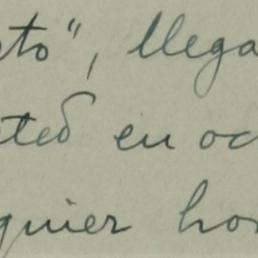 sto", llega
sted en oc
quier hor